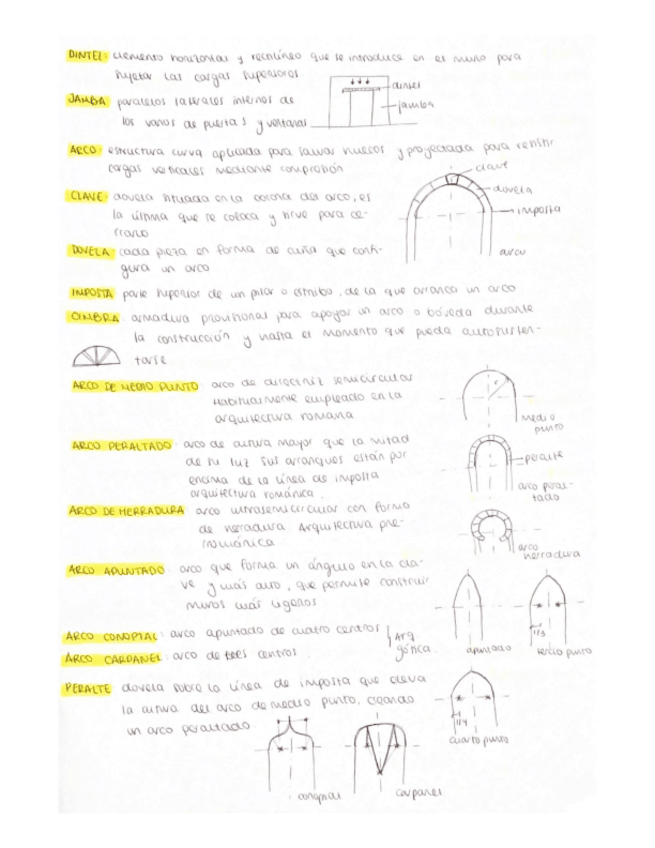 DINTEL: elemento horizontal y rectilíneo que se introduce en el muro para
sujetar las cargas superiores
dintel
JAMBA: paralelos laterales internos de
jamba
los vanos de puertas y ventanas
ARCO: estructura curva aplicada para salvar huecos y proyectada para resistir
cargas verticales mediante compresión
clave
CLAVE: dovela situada en la corona del arco, es
dovela
la última que se coloca y sirve para ce-
imposta
rrarlo
DOVELA: cada pieza en forma de cuña que confi-
arco
gura un arco
IMPOSTA: parte superior de un pilar o estribo, de la que arranca un arco
CIMBRA: armadura provisional para apoyar un arco o bóveda durante
la construcción y hasta el momento que pueda autosusten-
tarse
ARCO DE MEDIO PUNTO: arco de directriz semicircular
Habitualmente empleado en la
r
arquitectura romana
medio
punto
ARCO PERALTADO: arco de altura mayor que la mitad
de su luz. Sus arranques están por
peralte
encima de la línea de imposta
arquitectura románica.
arco peral-
tado
ARCO DE HERRADURA: arco ultrasemicircular con forma
de herradura. Arquitectura pre-
románica
arco
herradura
ARCO APUNTADO: arco que forma un ángulo en la cla-
ve y más alto, que permite construir
muros más ligeros
1/3
ARCO CONOPIAL: arco apuntado de cuatro centros
Arq
gótica.
apuntado
tercio punto
ARCO CARPANEL: arco de tres centros.
PERALTE: dovela sobre la línea de imposta que eleva
la altura del arco de medio punto, creando
1/4
un arco peraltado
cuarto punto
conopial
carpanel